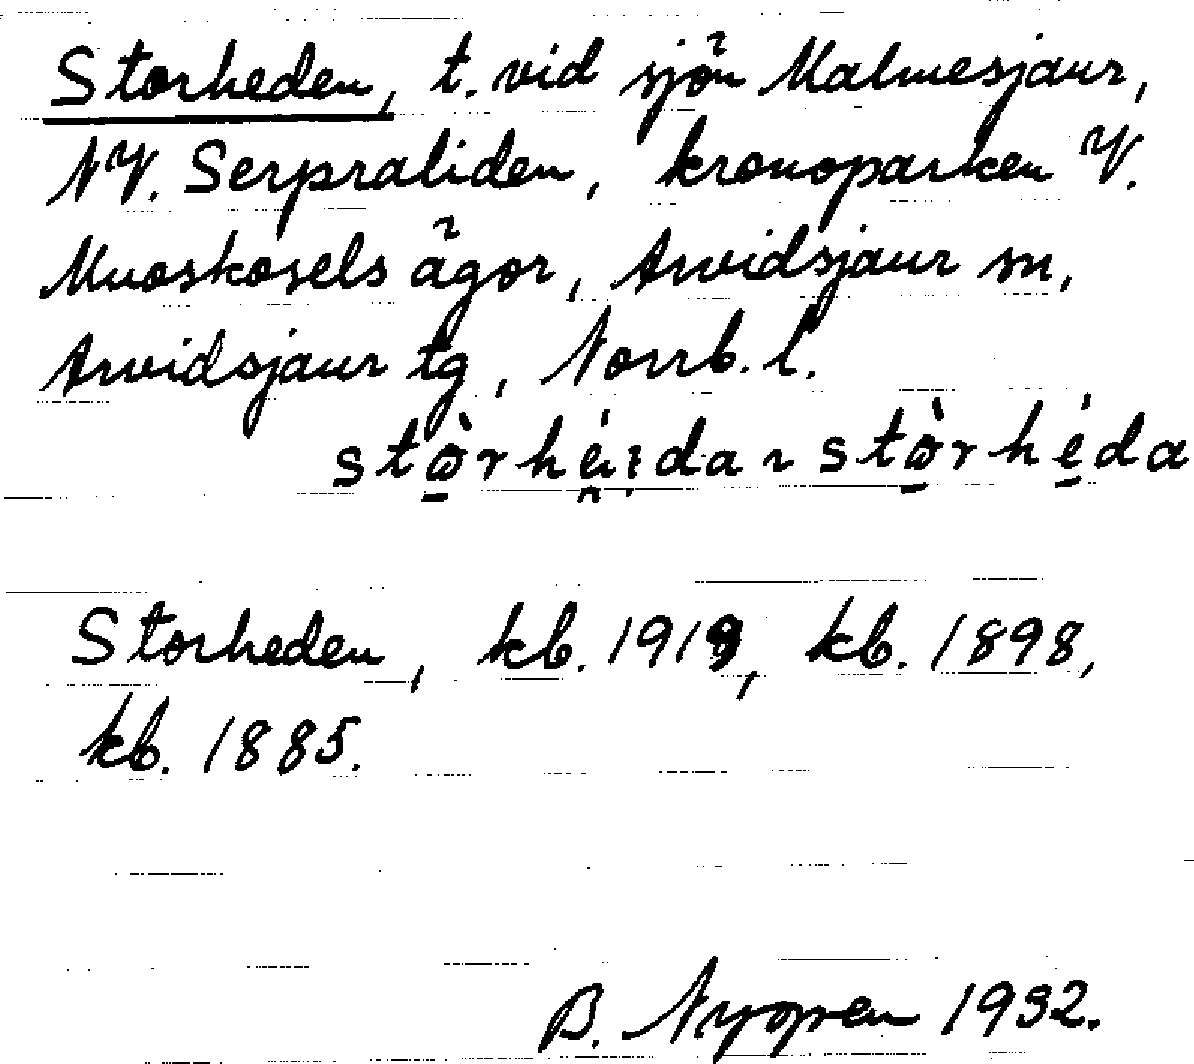 Storheden, t. vid sjön Malmesjaur,
NV. Serpraliden, kronoparken V.
Muoskosels ägor, Arvidsjaur sn,
Arvidsjaur tg, Norrb. l.
Storheden, kb. 1919, kb. 1898,
kb. 1885.
B. 1932.